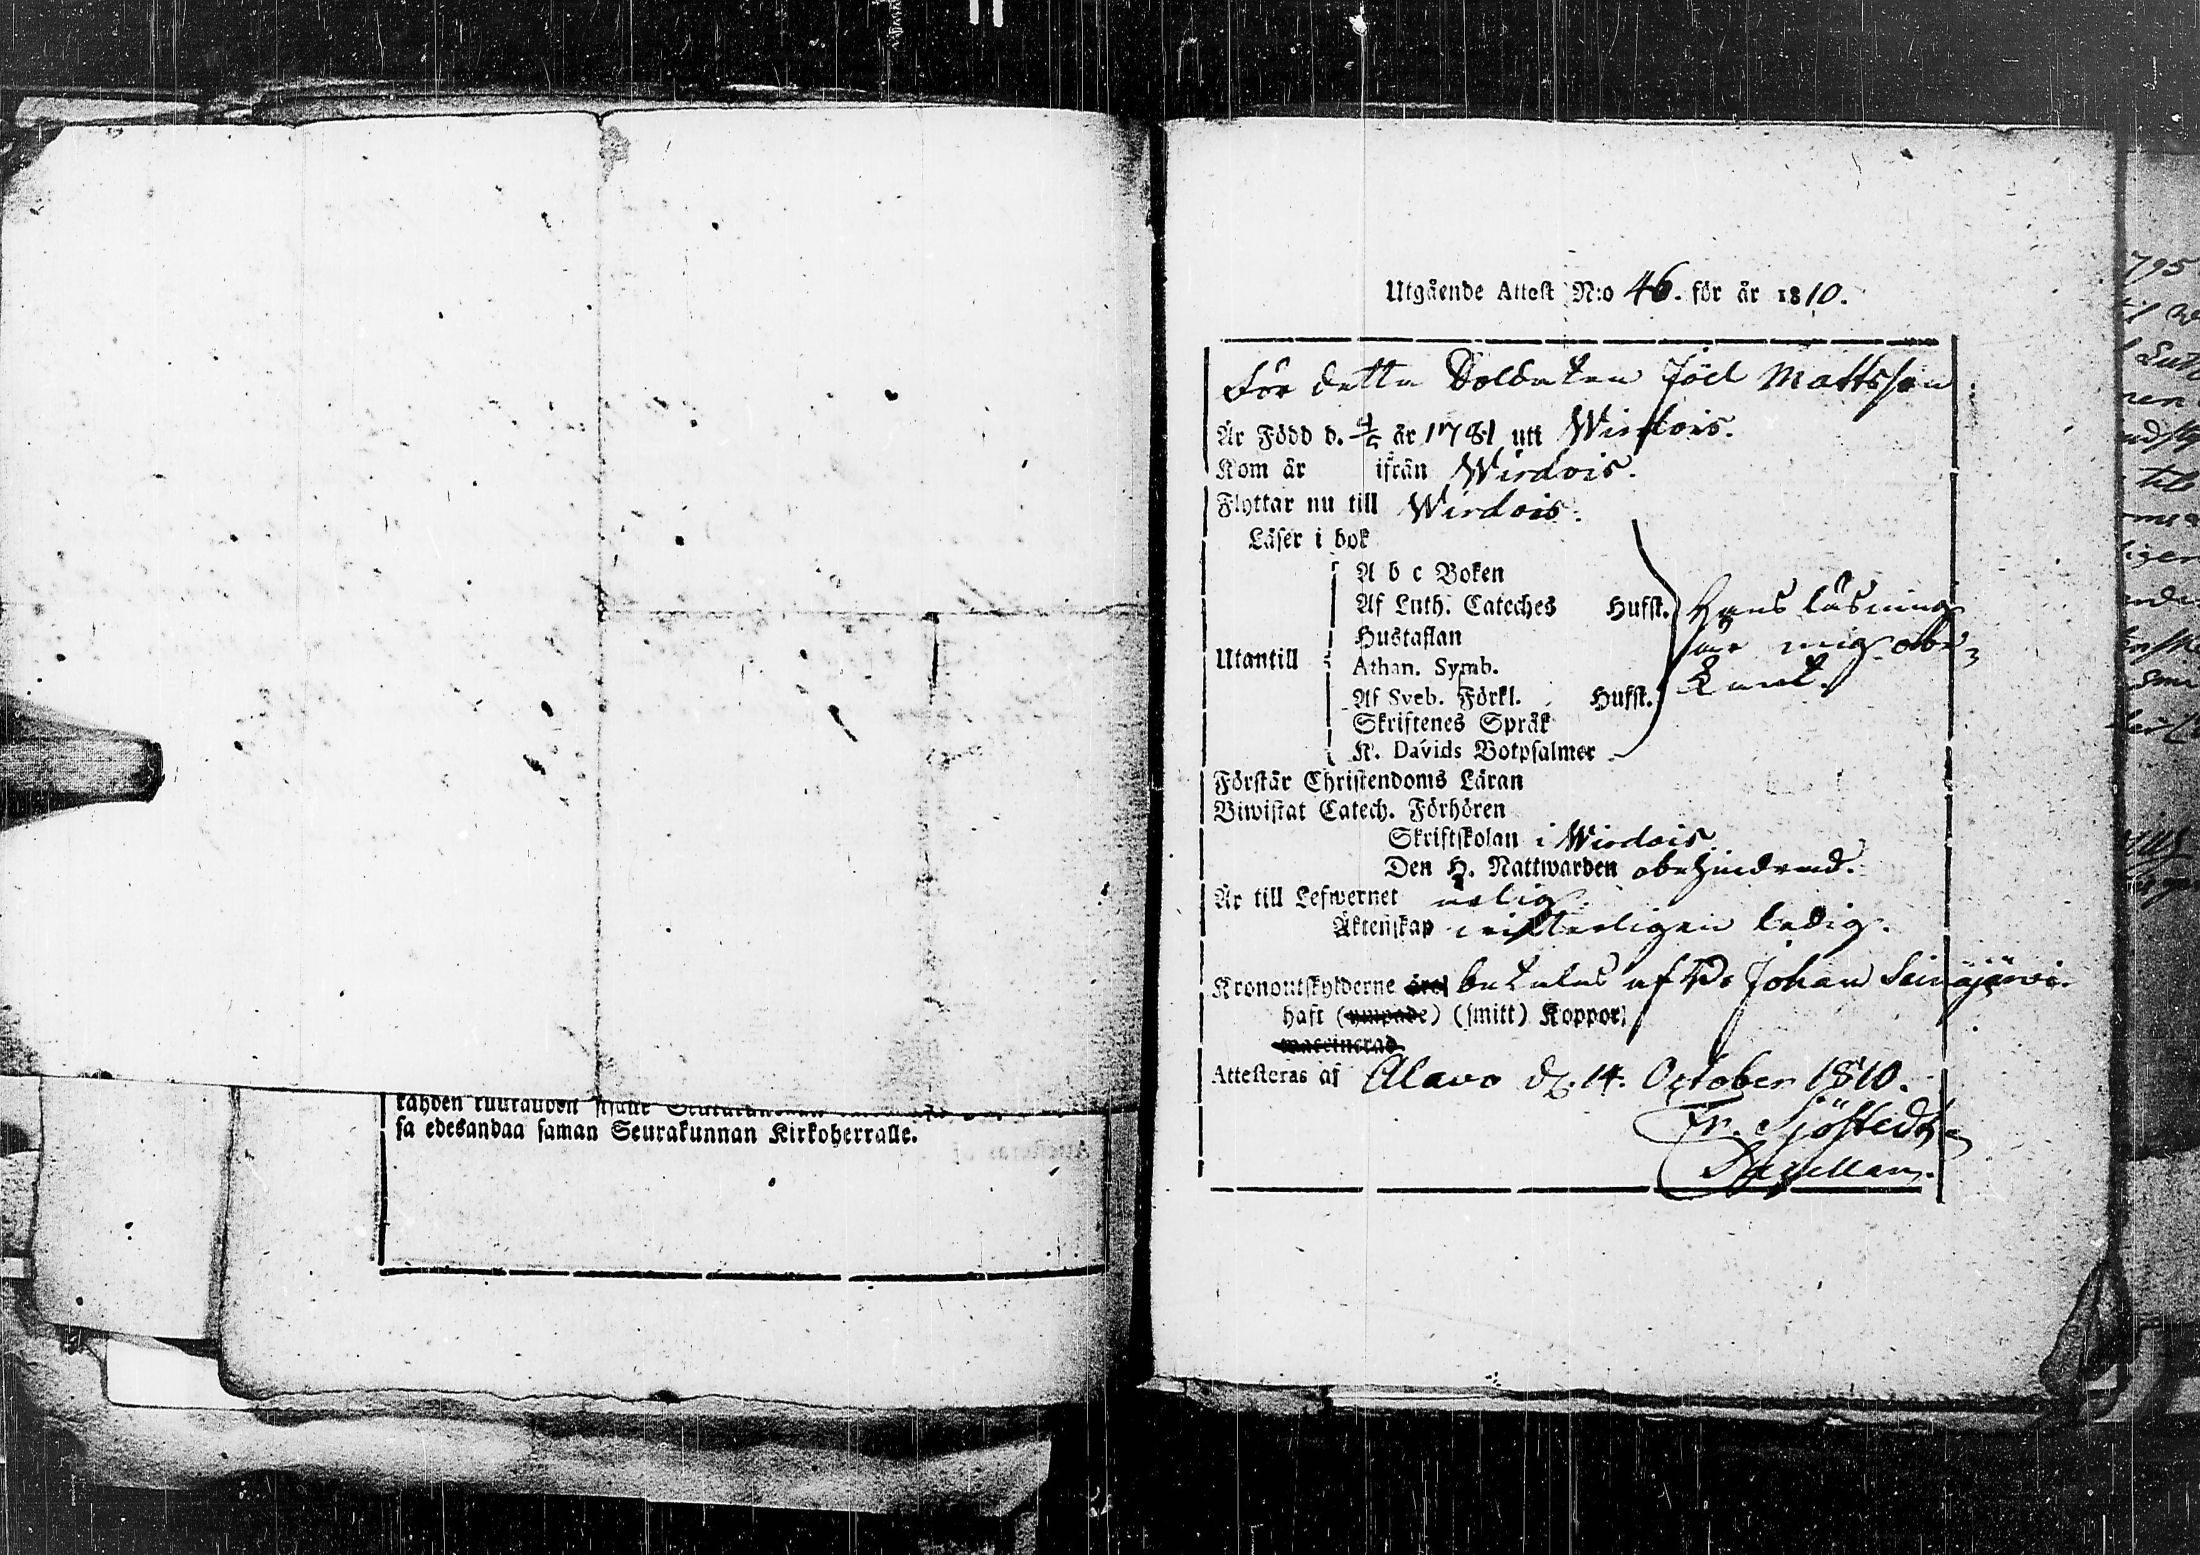 sa edesandaa saman Seurakunnan Kirkoherralle.
Utgående Attest N:o 46. för år 1810.
För detta Soldaten Joel Mattsson
Är Född d. år 1781 uti Wirdois.
Kom år ifrån Wirdois.
Flyttar nu till Wirdois.
Läser i bok
A b c Boken
Af Luth. Cateches Hufst.
Hustaflan
Utantill
Athan. Symb.
Af Sveb. Förkl. Hufst.
Skriftenes Språk
K. Davids Botpsalmer
Hans läsning
är mig obe-
kant.
Förstår Christendoms Läran
Biwistat Catech. Förhören
Skriftskolan i Wirdois
Den H. Nattwarden obehindrad.
Är till Lefwernet ärlig.
Äktenskap ledig.
Kronoutskylderne äro betalas af Johan Seinäjärvi.
haft (ympade) (smitt) Koppor,
waccinerad
Attesteras af Alavo d. 14. October 1810.
Fr. Sjöstedt.
Capellan.
1795